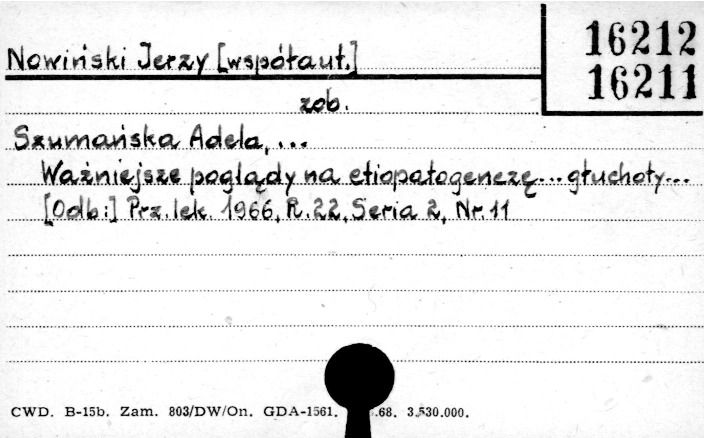 16212
16211
Nowiński Jerzy [współaut.]
zob.
Szumańska Adela, ...
Ważniejsze poglądy na etiopatogenezę... głuchoty...
[Odb:] Prz. lek. 1966, R. 22, Seria 2, Nr 11
CWD. B-15b. Zam. 803/DW/On. GDA-1561. .68. 3.530.000.